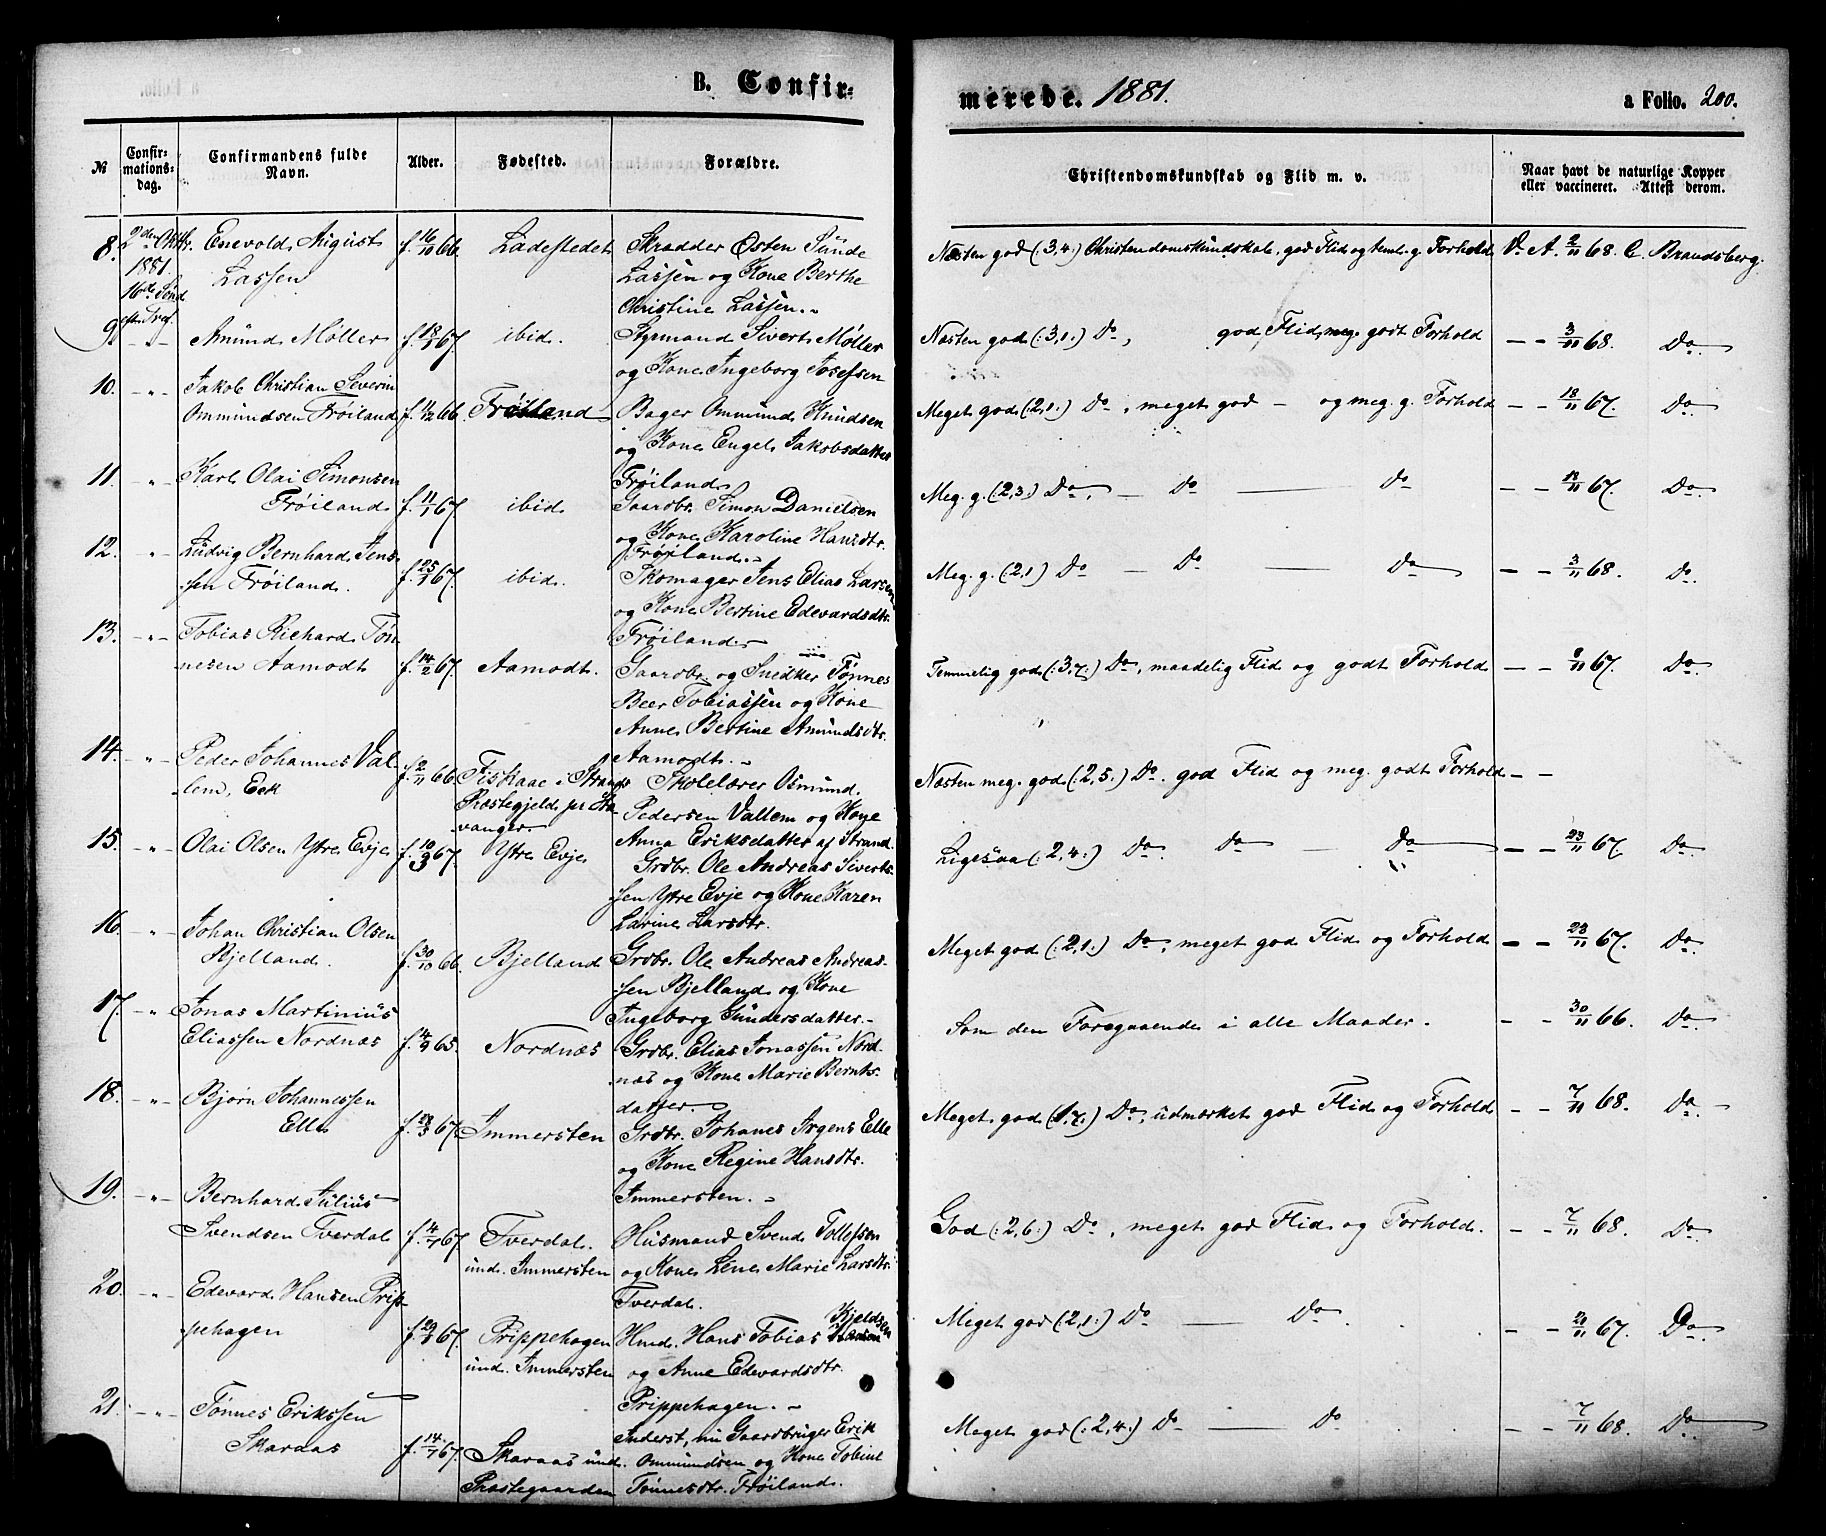 B. Confir-
merede. 1881.
a Folio. 200.
№
Confir-
mations-
dag.
Confirmandens fulde
Navn.
Alder.
Fødested.
Forældre.
Christendomskundskab og Flid m. v.
Naar havt de naturlige Kopper
eller vaccineret. Attest derom.
8. 2den Oktbr. Enevold August f. 16/10 66. Ladestedet Skrædder Østen Sunde Næsten god (: 3,4 :) Christendomskundskab, god Flid og teml. g. Forhold V. A. 2/11 68. C. Brandsberg.
1881. Lassen Lassen og Kone Berthe
16de Sønd Christine Lassen.
efter Tref.
9. -"- Amund Møller f. 18/1 67. ibid. Styrmand Sivert Møller Næsten god (: 3,1 :) Do, god Flid, meg. godt Forhold - - 3/11 68. Do
og Kone Ingeborg Josefsen
10. -"- Jakob Christian Severin
Ommundsen Frøiland f. 11/12 66. Frøiland Bager Ommund Knudsen Meget god (2,1 :) Do, meget god - og meg. g. Forhold - - 18/11 67. Do
og Kone Engel Jakobsdatter
11. " Karl Olai Simonsen Frøiland
Frøiland f. 11/1 67. ibid Gaardbr. Simon Danielsen Meg. g. (: 2,3 :) Do, - Do - Do - - 12/11 67. Do
og Kone Karoline Hansdtr.
12. " Ludvig Bernhard Jens- Frøiland.
sen Frøiland. f. 25/1 67. ibid. Skomager Jens Elias Larsen Meg. g. (: 2,1 :) Do - Do - Do - - 3/11 68. Do
og Kone Bertine Edevardsdtr.
13. -"- Tobias Richard Tøn- Frøiland
nesen Aamodt f. 14/2 67. Aamodt. Gaardbr. og Snedker Tønnes Temmelig god (: 3,7 :) Do, maadelig Flid og godt Forhold - - 8/11 67. Do
Beer Tobiassen og Kone
Anne Bertine Amundsdtr.
14. -"- Peder Johannes Val- Aamodt.
lem, Eek f. 2/11 66. Fiskaae i Strands Skolelærer Osmund Næsten meg. god (: 2,5 :) Do. god Flid og meg. godt Forhold - -
Præstegjeld pr Sta- Pedersen Vallem og Kone
vanger. Anna Eriksdatter af Strand.
15. -"- Olai Olsen Ytre Evje f. 10/3 67. Ytre Evje Grdbr. Ole Andreas Siverts- Ligesaa (: 2,4 :) Do. Do - Do - - 23/11 67. Do
sen Ytre Evje og Kone Karen
Lavine Larsdtr.
16. -"- Johan Christian Olsen
Bjelland. f. 30/10 66. Bjelland Grdbr. Ole Andreas Andreas- Meget god (: 2,1 :) Do, meget god Flid og Forhold - - 23/11 67. Do
sen Bjelland og Kone
17. -"- Jonas Martinius Ingeborg Gundersdatter.-
Eliassen Nordnæs f. 4/9 65. Nordnæs Grdbr. Elias Jonassen Nord- Som den Foregaaende i alle Maader. - - 30/11 66. Do
næs og Kone Marie Bernts-
18. -"- Bjørn Johannessen datter.
Elle f. 23/3 67. Immersten Grdbr. Johanes Irgens Elle Meget god (1,7 :) Do, udmærket god Flid og Forhold - - 7/11 68. Do
og Kone Regine Hansdtr.
19. -"- Bernhard Julius Immersten.
Svendsen Tverdal f. 4/7 67. Tverdal. Husmand Svend Tollefsen God (: 2,6 :) Do, meget god Flid og Forhold. - - 7/11 68. Do
und. Immersten og Kone Lene Marie Larsdtr.
20. -"- Edevard Hansen Prip- Tverdal.
pehagen f. 29/4 67. Prippehagen Hmd. Hans Tobias Kjeldsen Meget god (2,1 :) Do - Do - - 21/11 67. Do
und. Immersten og Anne Edevardsdtr.
21. -"- Tønnes Erikssen Prippehagen.
Skaraas f. 14/7 67. Skaraas und. Inderst, nu Gaardbruger Erik Meget god (: 2,4 :) Do - Do - - 7/11 68. Do
Præstegaarden Ommundsen og Kone Tobine
Tønnesdtr. Frøiland.